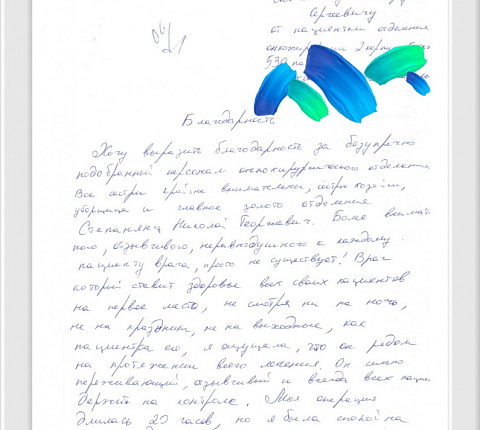 Сергеевичу
от пациентки отделения
онкохирургии 2 корпус
530 па
06/21
Благодарность
Хочу выразить благодарность за безупречно
подобранный персонал онкохирургического отделения
Все сестры крайне внимательны, сестра хозяйка,
уборщица и главное золото отделения
Степанянц Николай Георгиевич. Более внимат
ного, отзывчивого, неравнодушного к каждому
пациенту врача, просто не существует! Врач
который ставит здоровье всех своих пациентов
на первое место, не смотря ни на ночь,
не на праздники, не на выходные, как
пациентка его, я ощущала, что он рядом
на протяжении всего лечения. Он сильно
переживающий, отзывчивый и всегда всех паци
держит на контроле. Моя операция
длилась 20 часов, но я была спокойна